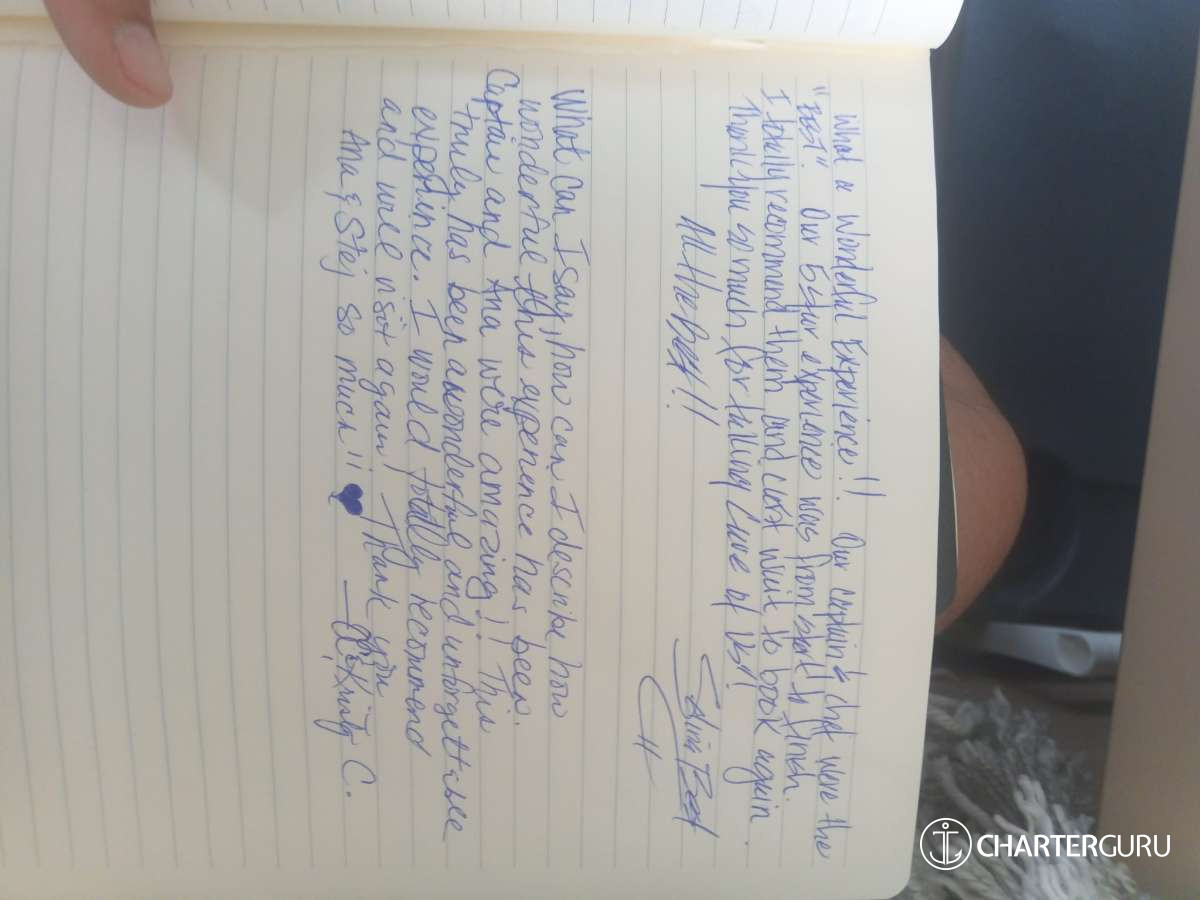 What a Wonderful Experience!! Our captain & chef were the
"best". Our 5 star experience was from start to finish.
I totally recommend them and can't wait to book again.
Thank you so much for taking Care of Us!
All the Best!!
What Can I say, how can I describe how
wonderful this experience has been.
Captain and Ana were amazing!! This
truly has been a wonderful and unforgettable
experience. I would totally recommend
and will visit again! Thank you
Ana & Stej so much!!
Kristy C.
CHARTERGURU